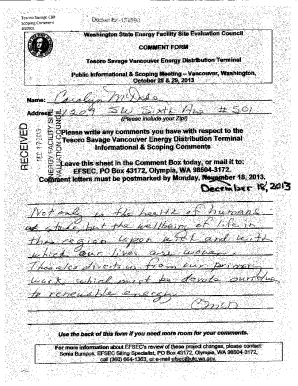 Tesoro Savage CBR
Scoping Comment
Docket EF-131590
Washington State Energy Facility Site Evaluation Council
COMMENT FORM
Tesoro Savage Vancouver Energy Distribution Terminal
Public Informational & Scoping Meeting – Vancouver, Washington,
October 28 & 29, 2013
Name: Carolyn
Address: 1209 SW Sixth Ave #501
(Please include your Zip!)
RECEIVED
DEC 17 2013
ENERGY FACILITY SITE
EVALUATION COUNCIL
Please write any comments you have with respect to the
Tesoro Savage Vancouver Energy Distribution Terminal
Informational & Scoping Comments
Leave this sheet in the Comment Box today, or mail it to:
EFSEC, PO Box 43172, Olympia, WA 98504-3172.
Comment letters must be postmarked by Monday, November 18, 2013.
December 18, 2013
Not only is the health of humans
at stake, but the wellbeing of life in
the region upon which and with
which our lives are woven.
This also diverts us from our primary
work which must be devoted
to renewable energy.
Use the back of this form if you need more room for your comments.
For more information about EFSEC's review of this project changes, please contact:
Sonia Bumpus, EFSEC Siting Specialist, PO Box 43172, Olympia, WA 98504-3172,
call (360) 664-1363, or e-mail efsec@utc.wa.gov.